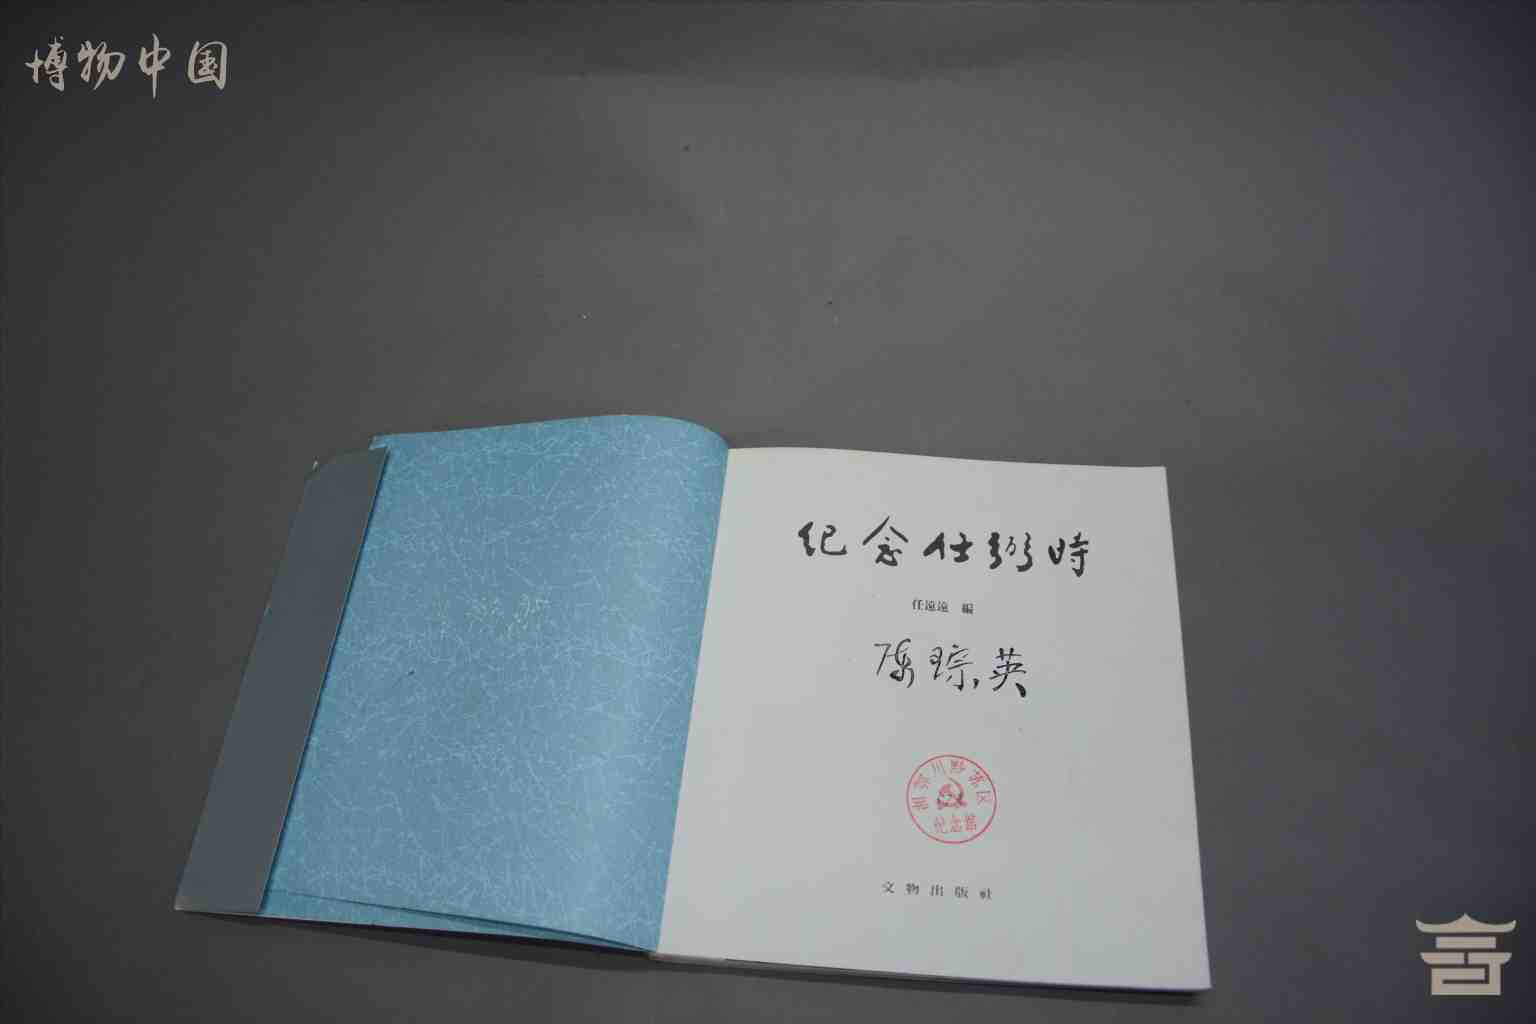 博物中国
纪念任弼時
任遠遠 編
陈琮英
湘鄂川黔苏区
纪念馆
文物出版社